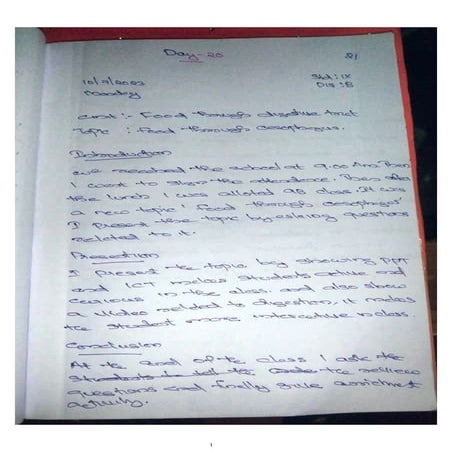 Day-20
21
10/7/2023
Std : IX
Monday
Div : B
Unit :- Food through digestive tract
Topic : Food through oesophagus.
Introduction
We reached the school at 9.00 Am. Then
I went to sign the attendance. Then after
the lunch I was alloted 9B class. It was
a new topic, food through oesophagus'
I present the topic by asking questions
related to it.
Presention
I present the topic by showing ppt
and ICT makes students active and
curious in the class. and also show
a video related to digestion. it makes
the student more interactive in class.
Conclusion
At the end of the class I ask the
the review
questions and finally give enrichment
activity.